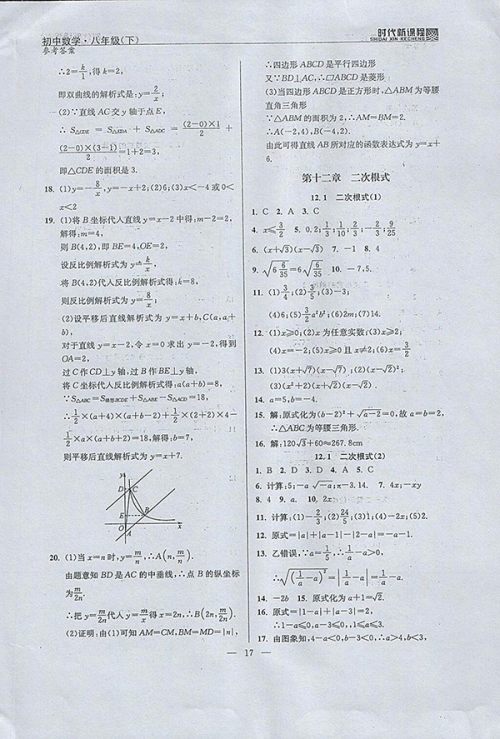 初中数学·八年级(下)
时代新课程
SHIDAI XIN KECHENG
参考答案
∴2=k/1,得k=2,
即双曲线的解析式是:y=2/x;
(2)∵直线AC交y轴于点E,
∴ S△CDE = S△EDA + S△ADC = (2-0)×1/2 +
(2-0)×(3-1)/2=1+2=3,
即△CDE的面积是3.
18. (1)y=-8/x,y=-x+2;(2)6;(3)x<-4或0<
x<2
19. (1)将B坐标代入直线y=x-2中得:m-2=2,
解得:m=4,
则B(4,2),即BE=4,OE=2,
设反比例解析式为y=k/x,
将B(4,2)代入反比例解析式得:k=8,
则反比例解析式为y=8/x;
(2)设平移后直线解析式为y=x+b,C(a,a+
b),
对于直线y=x-2,令x=0求出y=-2,得到
OA=2,
过C作CD⊥y轴,过B作BE⊥y轴,
将C坐标代入反比例解析式得:a(a+b)=8,
∵S△ABC=S梯形BCDE+S△ABE-S△ACD=18,
∴1/2×(a+4)×(a+b-2)+1/2×(2+2)×4-
1/2×a×(a+b+2)=18,解得:b=7,
则平移后直线解析式为y=x+7.
y
D C
E B
O x
A
20. (1)当x=n时,y=m/n,∴A(n,m/n).
由题意知BD是AC的中垂线,∴点B的纵坐标
为m/2n.
∴把y=m/2n代入y=m/x得x=2n,∴B(2n,m/2n).
(2)证明:由(1)可知AM=CM,BM=MD=|n|,
∴四边形ABCD是平行四边形
又∵BD⊥AC,∴□ABCD是菱形
(3)当四边形ABCD是正方形时,△ABM为等腰
直角三角形
∵△ABM的面积为2,∴AM=BM=2.
∴A(-2,4),B(-4,2).
由此可得直线AB所对应的函数表达式为y=x+
6.
第十二章 二次根式
12.1 二次根式(1)
1. C 2. A 3. C
4. x≤3/2 5. 0,2;1/3;1/10;2/3;-2/3;9/25
6. (x+√3)(x-√3) 7. -1 8. 4
9. √(6 6/35)=6√(6/35) 10. -7,5.
11. (1)3/4;(2)3/5;(3)-3;
(4)6;(5)3/2a²b²;(6)2m;(7)14.
12. (1)x≥0;(2)x为任意实数;(3)x≥2;
(4)x=-2;(5)x≥0且x≠2;(6)x=3/2
13. (1)3(x+√7)(x-√7);(2)(x-√2)²;
(3)(x²+2)(x+√2)(x-√2).
14. a=5,b=-4.
15. 解:原式化为(b-2)²+√(a-2)=0,故a=b=2,
∴△ABC为等腰三角形.
16. 解:120√3+60≈267.8cm
12.1 二次根式(2)
1. B 2. D 3. D 4. A 5. C
6. 计算:5;-a√(-a);π-3.14. 7. 4x;-xy
8. 4 9. a. 10. 2x
11. 计算:(1)-2/3;(2)24/5;(3)1;(4)-2x;(5)2.
12. 原式=|a|+|a-1|-|2-a|=-a-1.
13. 乙错误,∵a=1/5,∴1/a-a>0,
∴√(1/a-a)²=|1/a-a|=1/a-a.
14. -2b 15. 原式化为a+1=√2.
16. 原式=|1-a|+|a-3|=2,
∴1-a≤0,a-3≤0,∴1≤a≤3.
17. 由图象知,4-a<0,b-3<0,∴a>4,b<3,
— 17 —